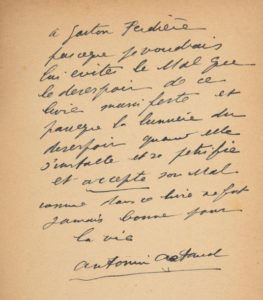 à Gaston Ferdière
parceque je voudrais
lui éviter le Mal que
le desespoir de ce
livre manifeste et
parceque la lumière du
desespoir quand elle
s'installe et se petrifie
et accepte son Mal
comme dans ce livre ne fut
jamais bonne pour
la vie
Antonin Artaud